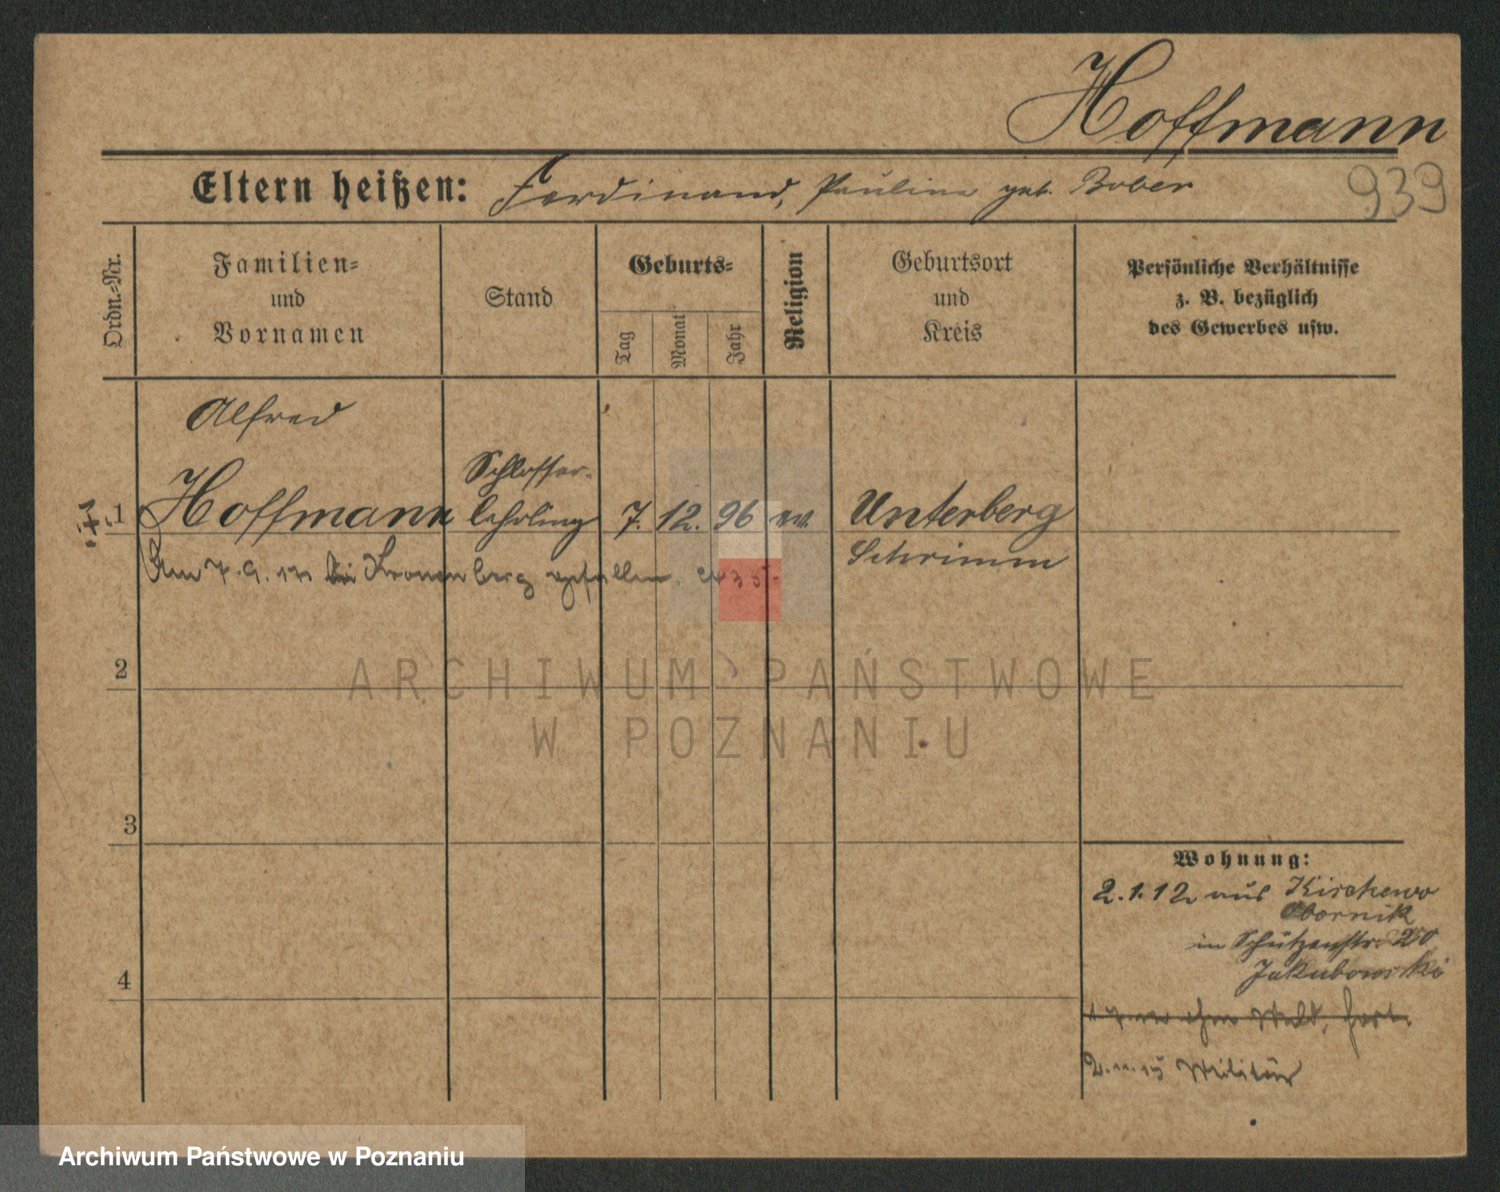 Hoffmann
939
Eltern heißen: Ferdinand, Pauline geb. Bober
Ordn.-Nr.
Familien-
und
Vornamen
Stand
Geburts-
Tag
Monat
Jahr
Religion
Geburtsort
und
Kreis
Persönliche Verhältnisse
z. B. bezüglich
des Gewerbes usw.
Alfred
Schlosser-
1 Hoffmann lehrling 7. 12. 96 ev. Unterberg
Schrimm
Am 7. 9. gefallen.
2
3
4
Wohnung:
2.1.12 aus Kirchewo
Obornik
in Schützenstr. 20
Jakubowski
2.11.15 Militär
ARCHIWUM PAŃSTWOWE
W POZNANIU
Archiwum Państwowe w Poznaniu